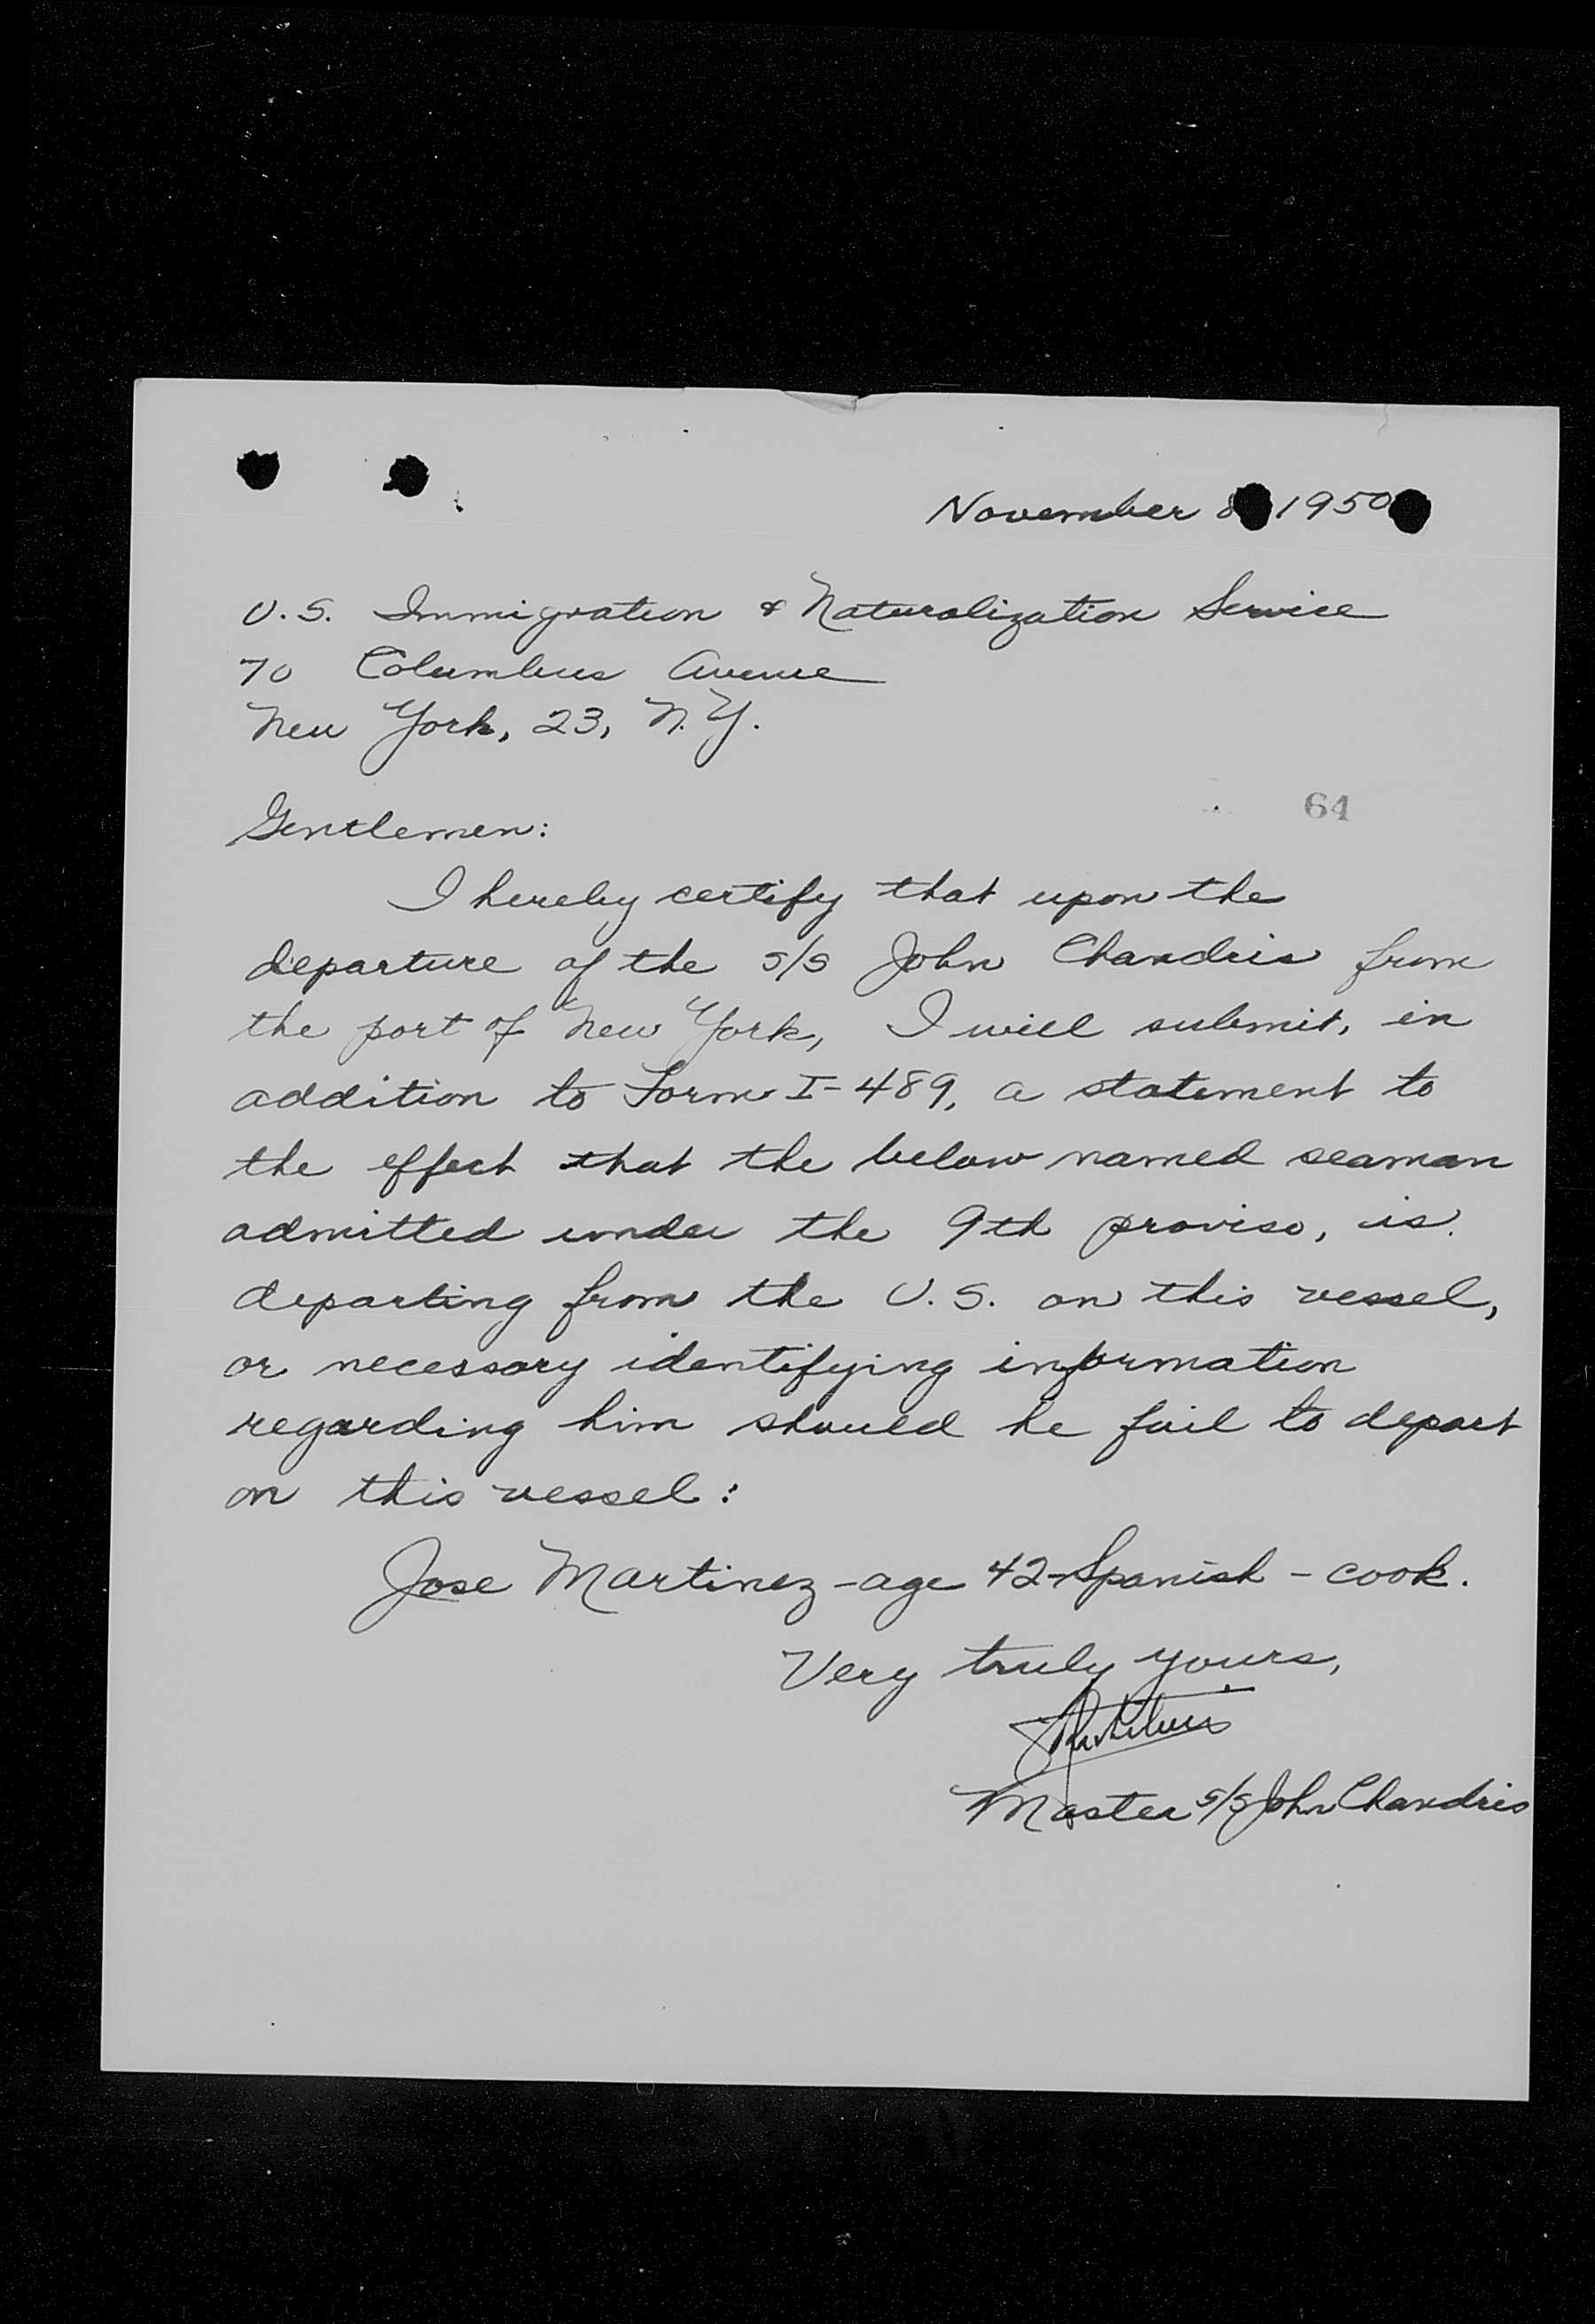 November 8 1950
U.S. Immigration & Naturalization Service
70 Columbus Avenue
New York, 23, N.Y.
64
Gentlemen:
I hereby certify that upon the
departure of the s/s John Chandris from
the port of New York, I will submit, in
addition to Form I-489, a statement to
the effect that the below named seaman
admitted under the 9th proviso, is
departing from the U.S. on this vessel,
or necessary identifying information
regarding him should he fail to depart
on this vessel:
Jose Martinez - age 42 - Spanish - cook.
Very truly yours,
Master s/s John Chandris